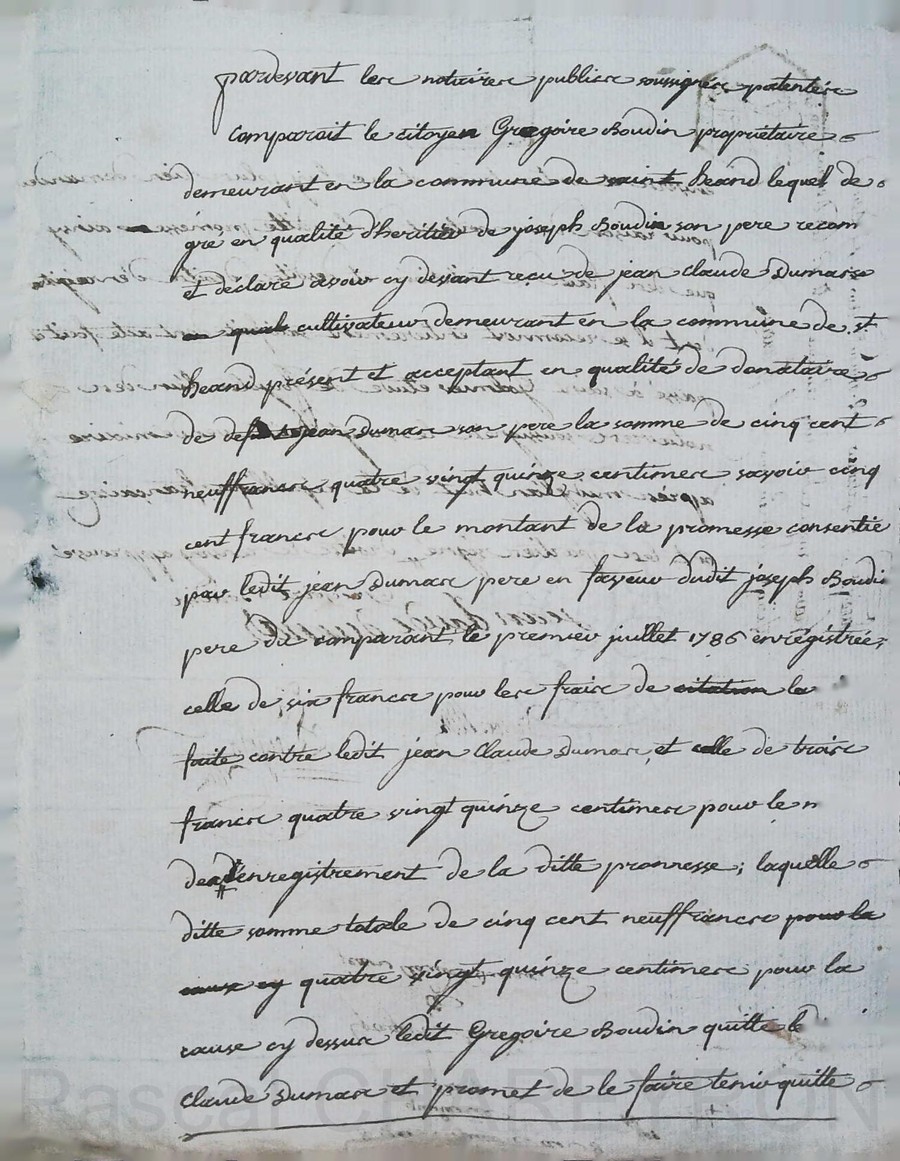 pardevant les notaires publics soussignés patentés
comparait le citoyen Gregoire Boudin propriétaire
demeurant en la commune de saint heand lequel de
gré en qualité d'heritier de joseph Boudin son pere recon
et déclare avoir cy devant recu de jean claude Dumars
cultivateur demeurant en la commune de st
heand présent et acceptant en qualité de donataire
de jean Dumars son pere la somme de cinq cent
neuf francs quatre vingt quinze centimes savoir cinq
cent francs pour le montant de la promesse consentie
par ledit jean Dumars pere en faveur dudit joseph Boudi
pere du comparant le premier juillet 1786 enregistrée
celle de six francs pour les frais de citation la
faite contre ledit jean Claude Dumars et celle de trois
francs quatre vingt quinze centimes pour le
enregistrement de la ditte promesse; laquelle
ditte somme totale de cinq cent neuf francs pour la
cause cy quatre vingt quinze centimes pour la
cause cy dessus ledit Gregoire Boudin quitte le
claude Dumars et promet de le faire tenir quitte
Pascal CHAREYRON